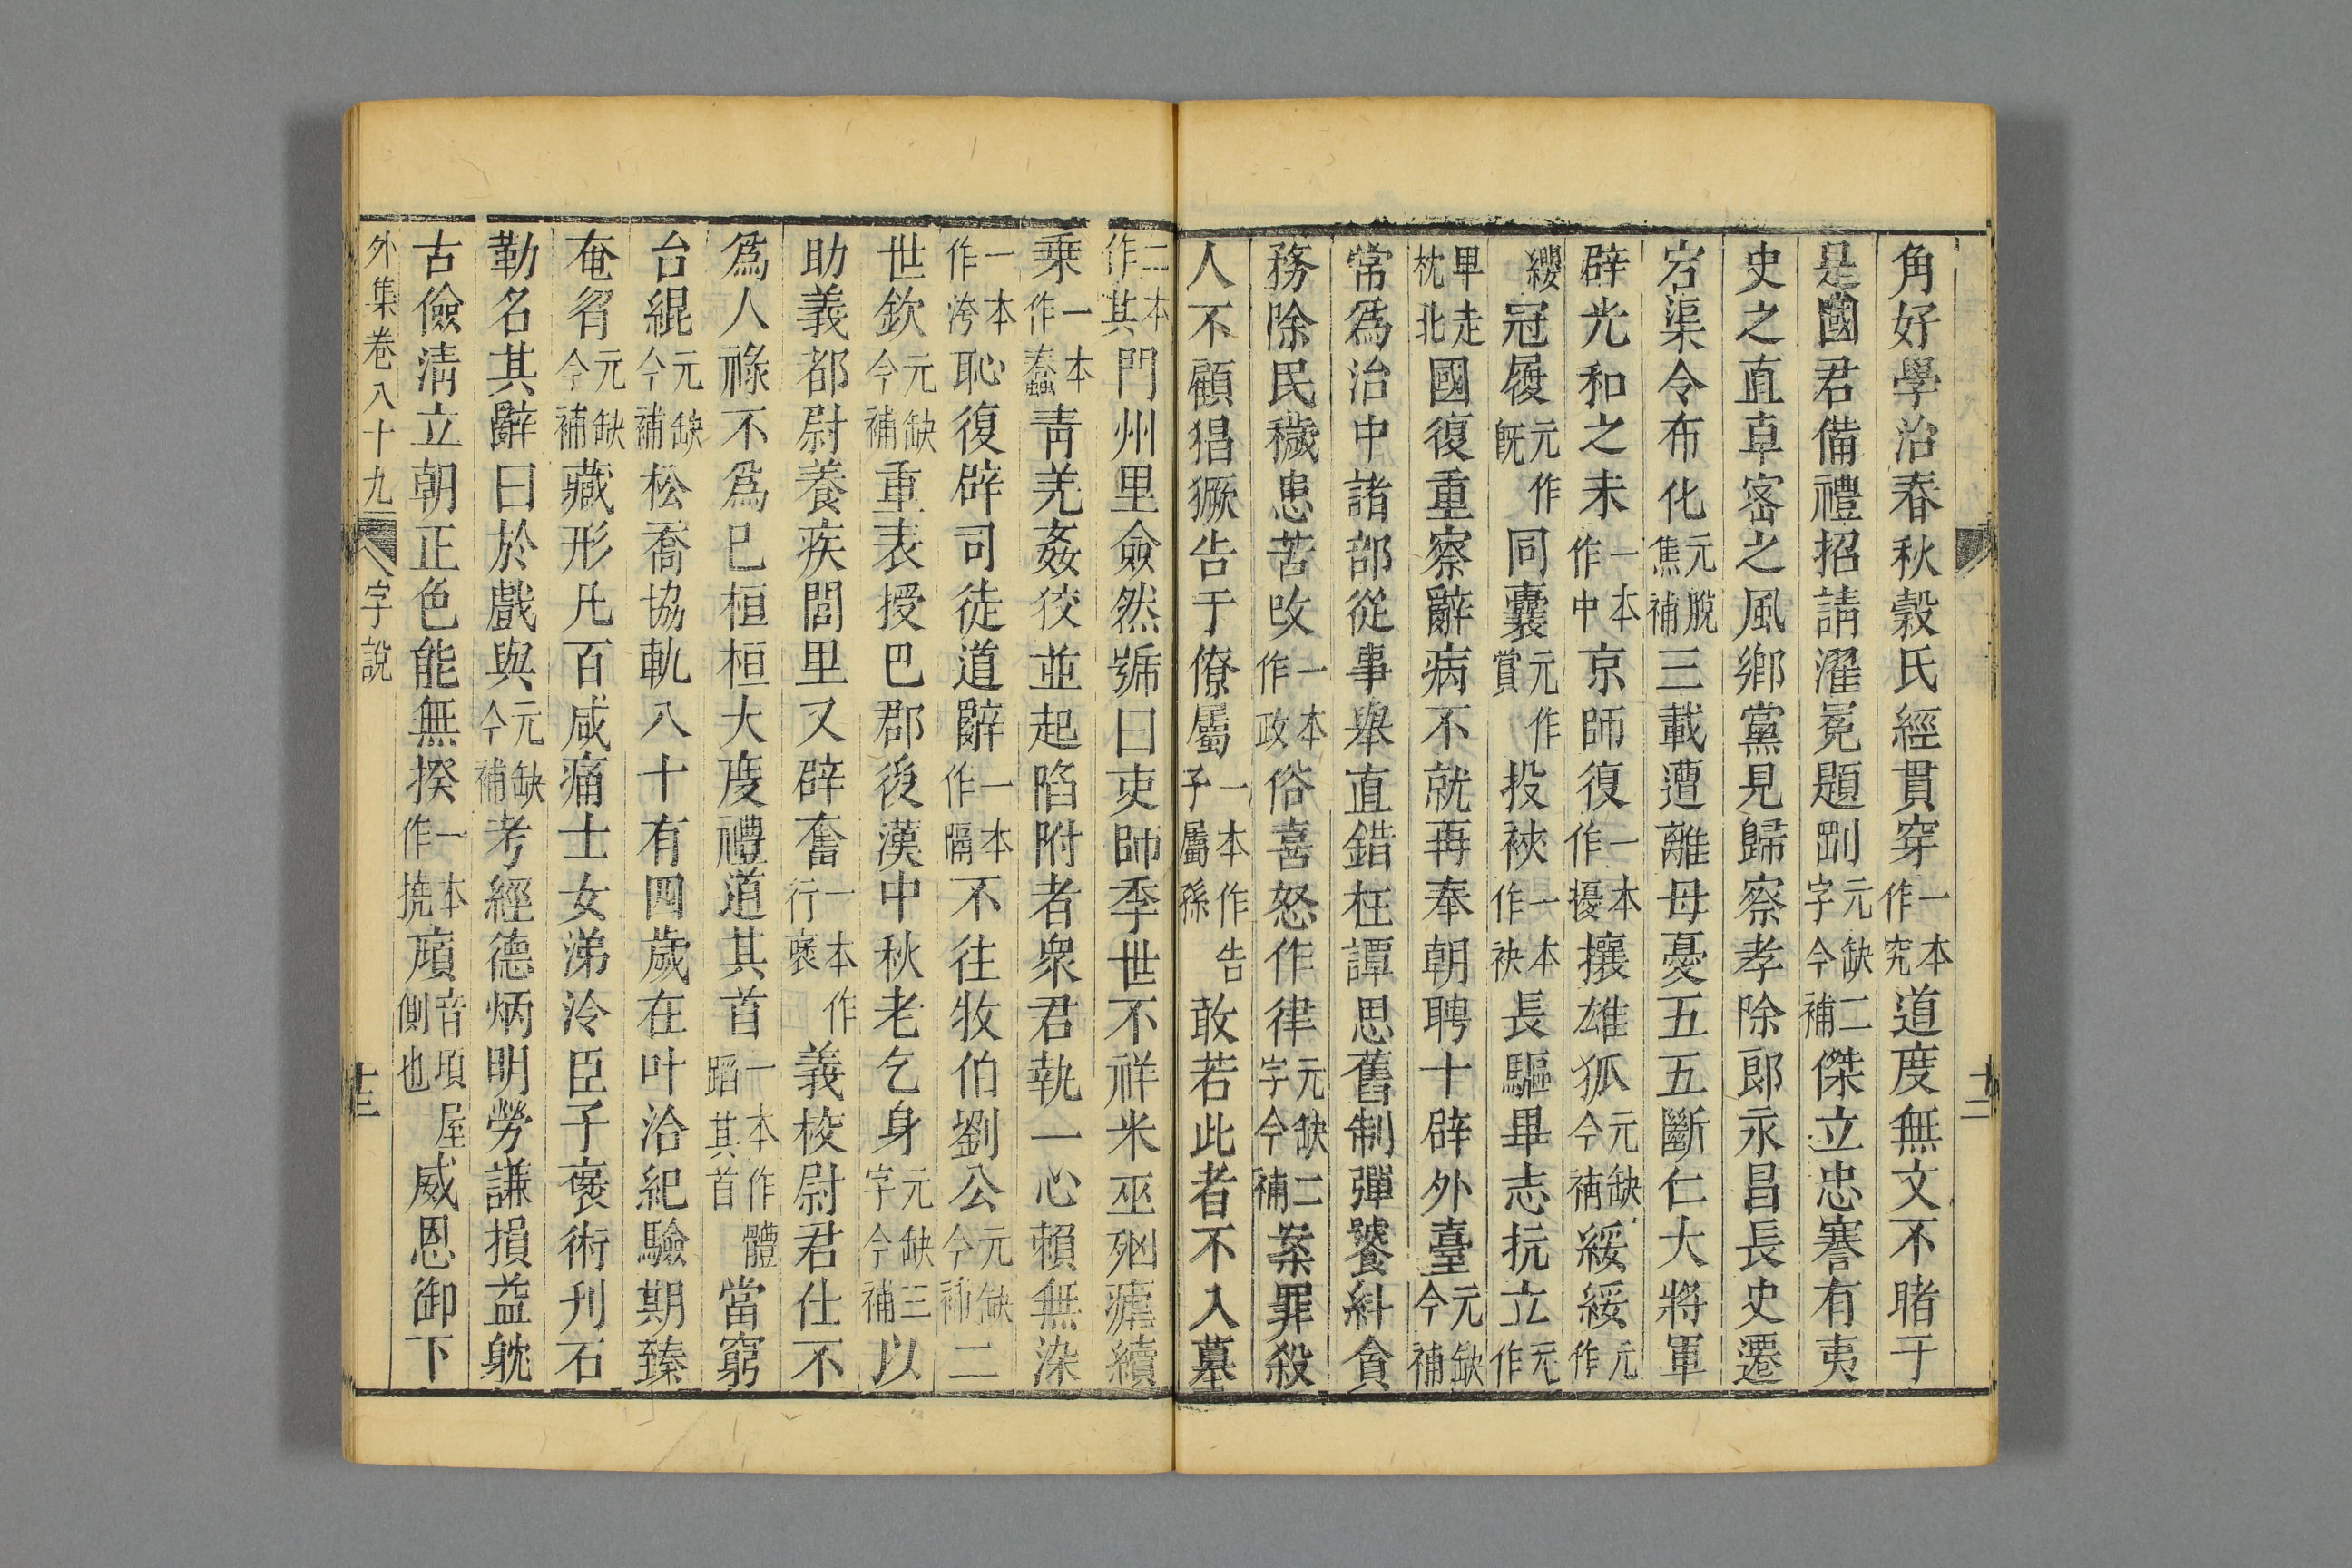 角好學治春秋穀氏經貫穿一本作究道度無文不睹于
是國君備禮招請濯冕題剛元缺二字今補傑立忠謇有夷
史之直卓密之風鄉黨見歸察孝除郎永昌長史遷
宕渠令布化元脫焦補三載遭離母憂五五斷仁大將軍
辟光和之末一本作中京師復一本作擾攘雄狐元缺今補綏綏元作
纓冠履元作旣同囊元作賞投袂一本作袂長驅畢志抗立元作
畢走枕北國復重察辭病不就再奉朝聘十辟外臺元缺今補
常爲治中諸部從事舉直錯枉譚思舊制彈饕糾貪
務除民穢患苦改一本作政俗喜怒作律元缺二字今補案罪殺
人不顧猖獗告于僚屬一本作告子屬孫敢若此者不入墓
十二
二本作其門州里僉然號曰吏師季世不祥米巫殈瘧續
乗一本作蠢青羌姦狡並起陷附者衆君執一心賴無染
一本作洿恥復辟司徒道辭一本作隔不往牧伯劉公元缺今補二
世欽元缺今補重表授巴郡後漢中秋老乞身元缺三字今補以
助義都尉養疾閭里又辟奮一本作行褒義校尉君仕不
爲人祿不爲已桓桓大度禮道其首一本作體蹈其首當窮
台緄元缺今補松喬協軌八十有四歲在叶洽紀驗期臻
奄䏍元缺今補藏形凡百咸痛士女涕泠臣子褒術刋石
勒名其辭曰於戲與元缺今補考經德炳明勞謙損益躭
古儉清立朝正色能無揆一本作撓㕓音項屋側也威恩御下
外集卷八十九 字說
十三